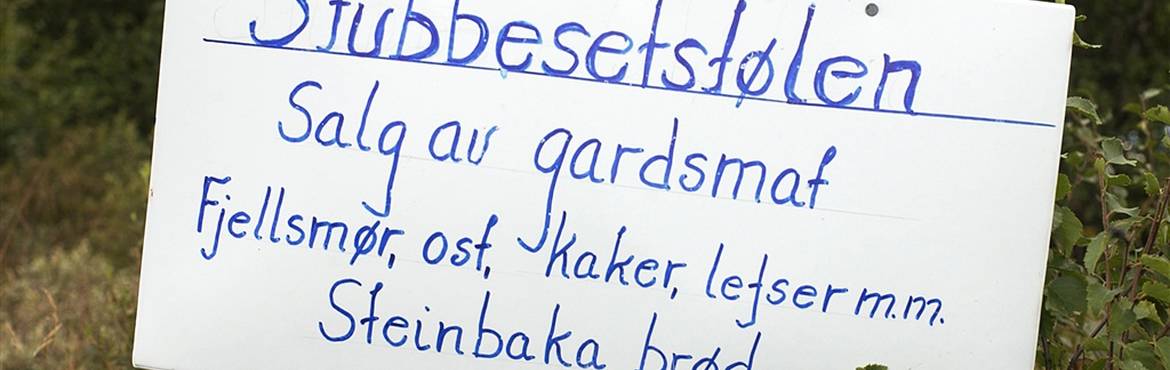 Stubbesetstølen
Salg av gardsmat
Fjellsmør, ost, kaker, lefser m.m.
Steinbaka brød